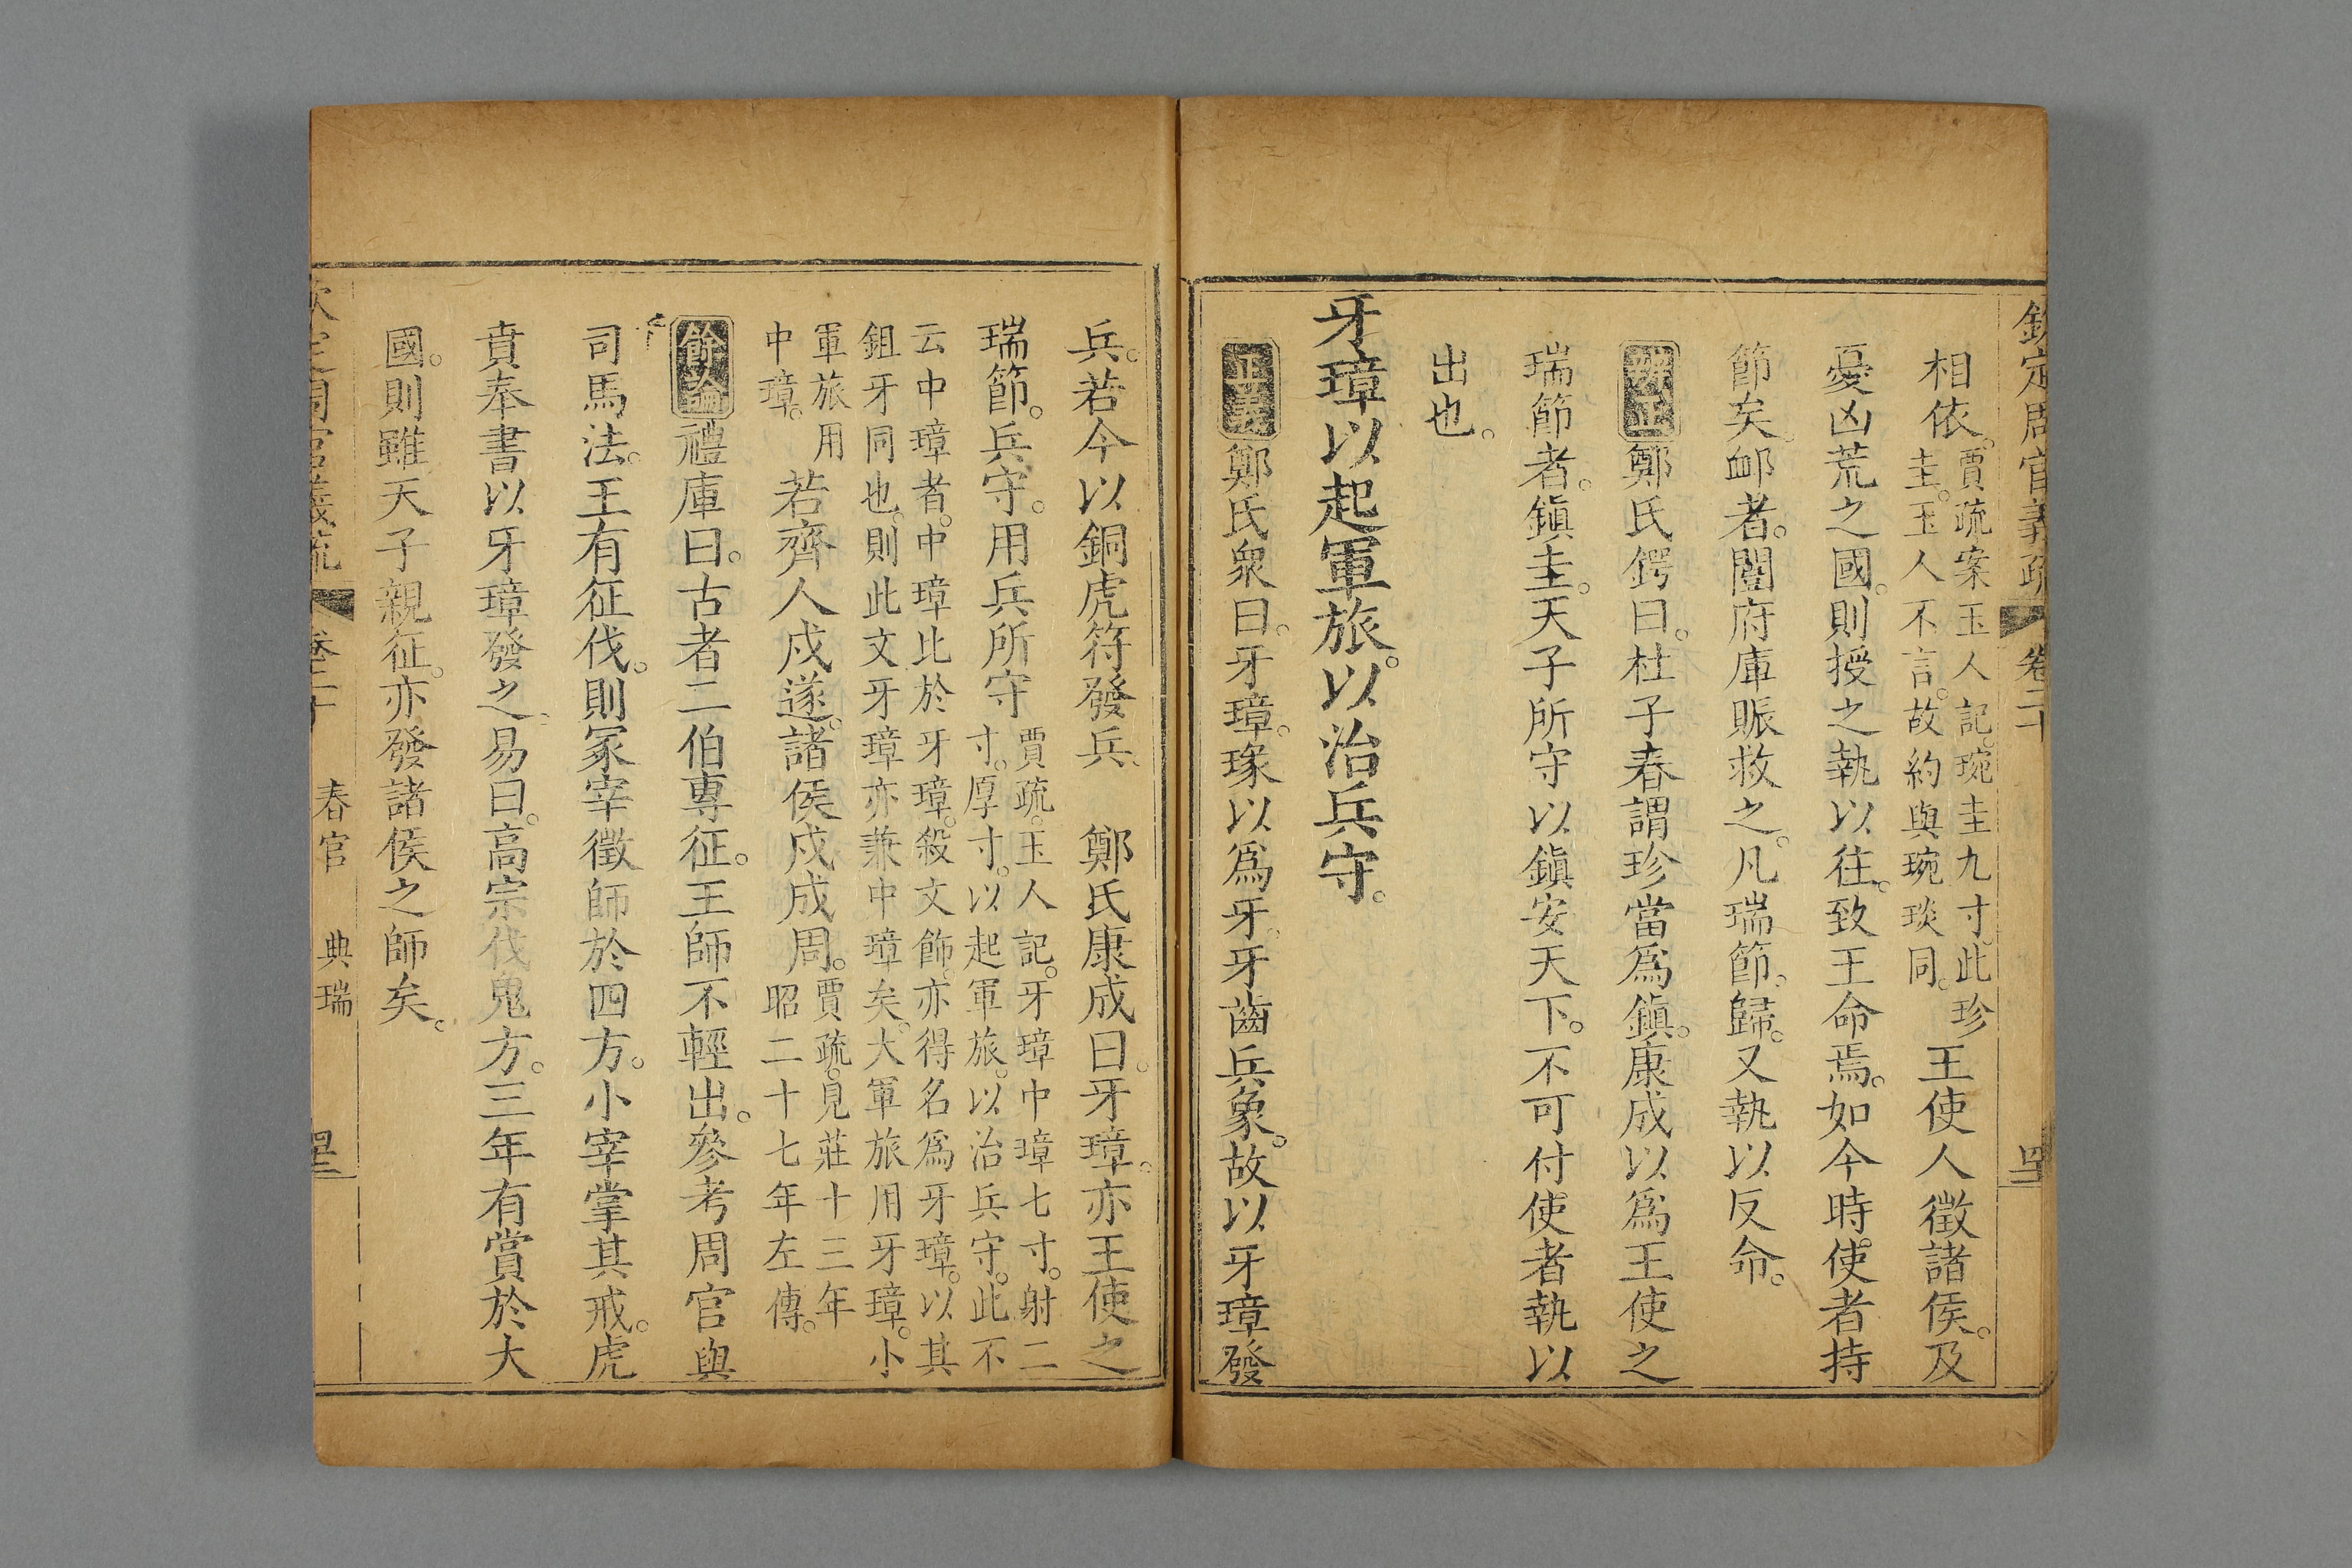 欽定周官義疏 卷二十
相依。賈疏案玉人記。琬圭九寸。此珍圭。玉人不言。故約與琬琰同。王使人徵諸侯。及
憂凶荒之國。則授之執以往。致王命焉。如今時。使者持
節矣。䘏者。闓府庫賑救之。凡瑞節。歸。又執以反命。
辨正鄭氏鍔曰。杜子春謂珍當爲鎭。康成以爲王使之
瑞節者。鎭圭。天子所守以鎭安天下。不可付使者執以
出也。
牙璋以起軍旅。以治兵守。
正義鄭氏衆曰。牙璋。瑑以爲牙。牙齒兵象。故以牙璋發
兵。若今以銅虎符發兵、 鄭氏康成曰。牙璋。亦王使之
瑞節。兵守。用兵所守賈疏。玉人記。牙璋中璋七寸。射二寸。厚寸。以起軍旅。以治兵守。此不
云中璋者。中璋比於牙璋。殺文飾。亦得名爲牙璋。以其鉏牙同也。則此文牙璋亦兼中璋矣。大軍旅用牙璋。小
軍旅用中璋。若齊人戍遂。諸侯戍成周。賈疏。見莊十三年昭二十七年左傳。
餘論禮庫曰。古者二伯專征。王師不輕出。參考周官與
司馬法。王有征伐。則冢宰徵師於四方。小宰掌其戒。虎
賁奉書以牙璋發之、易曰。高宗伐鬼方。三年有賞於大
國。則雖天子親征。亦發諸侯之師矣。
欽定周官義疏 卷二十 春官 典瑞